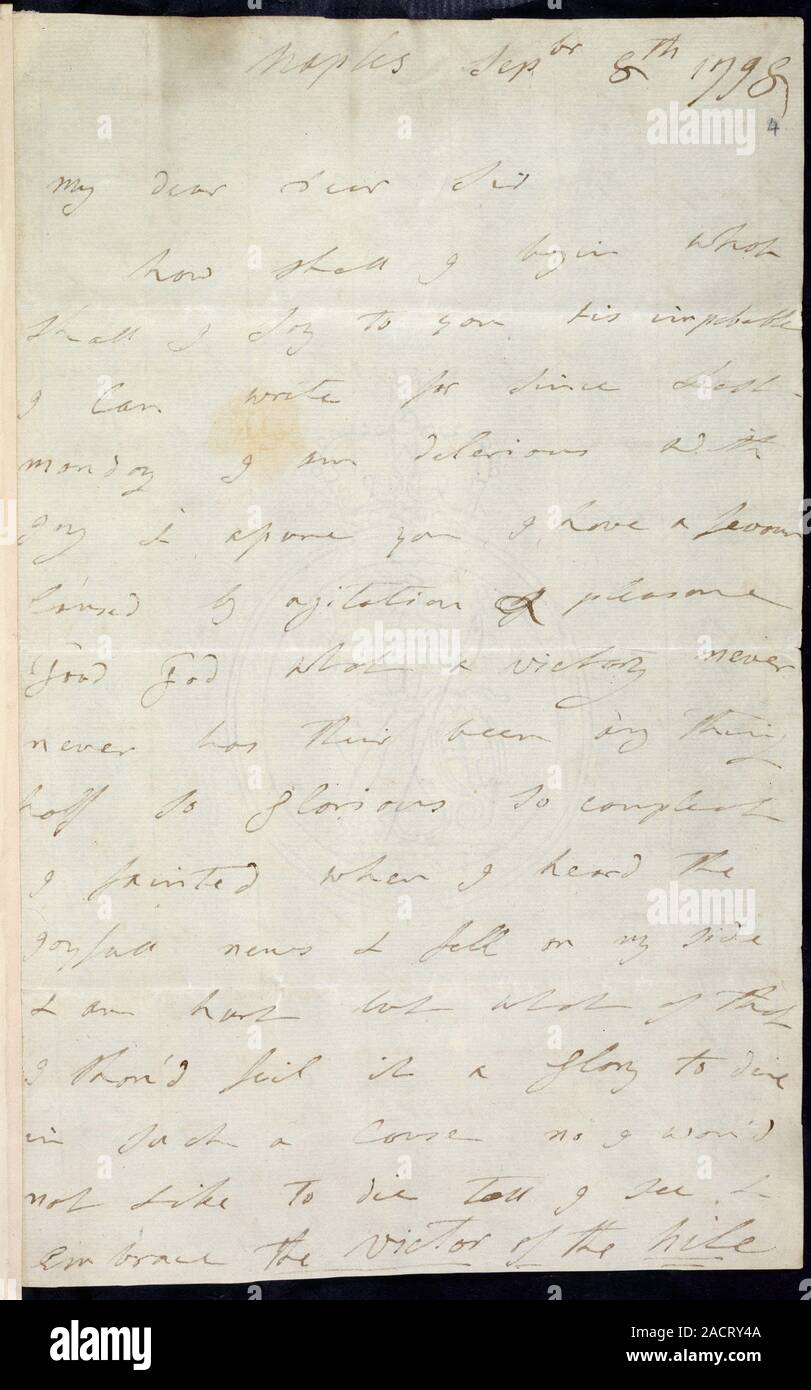 Naples Sepbr 8th 1798
4
my dear dear Sir
how shall I begin what
shall I say to you tis impossible
I can write for since Last
monday I am delerious with
joy & assure you I have a fevour
caused by agitation & pleasure
Good God what a victory never
never has their been any thing
half so glorious so compleat
I fainted when I heard the
joyfull news & fell on my side
& am hurt but what of that
I shou'd feil it a glory to die
in such a cause no I wou'd
not Like to die tell I see &
embrace the Victor of the Nile
alamy
alamy
alamy
alamy
alamy
alamy
Image ID: 2ACRY4A
www.alamy.com